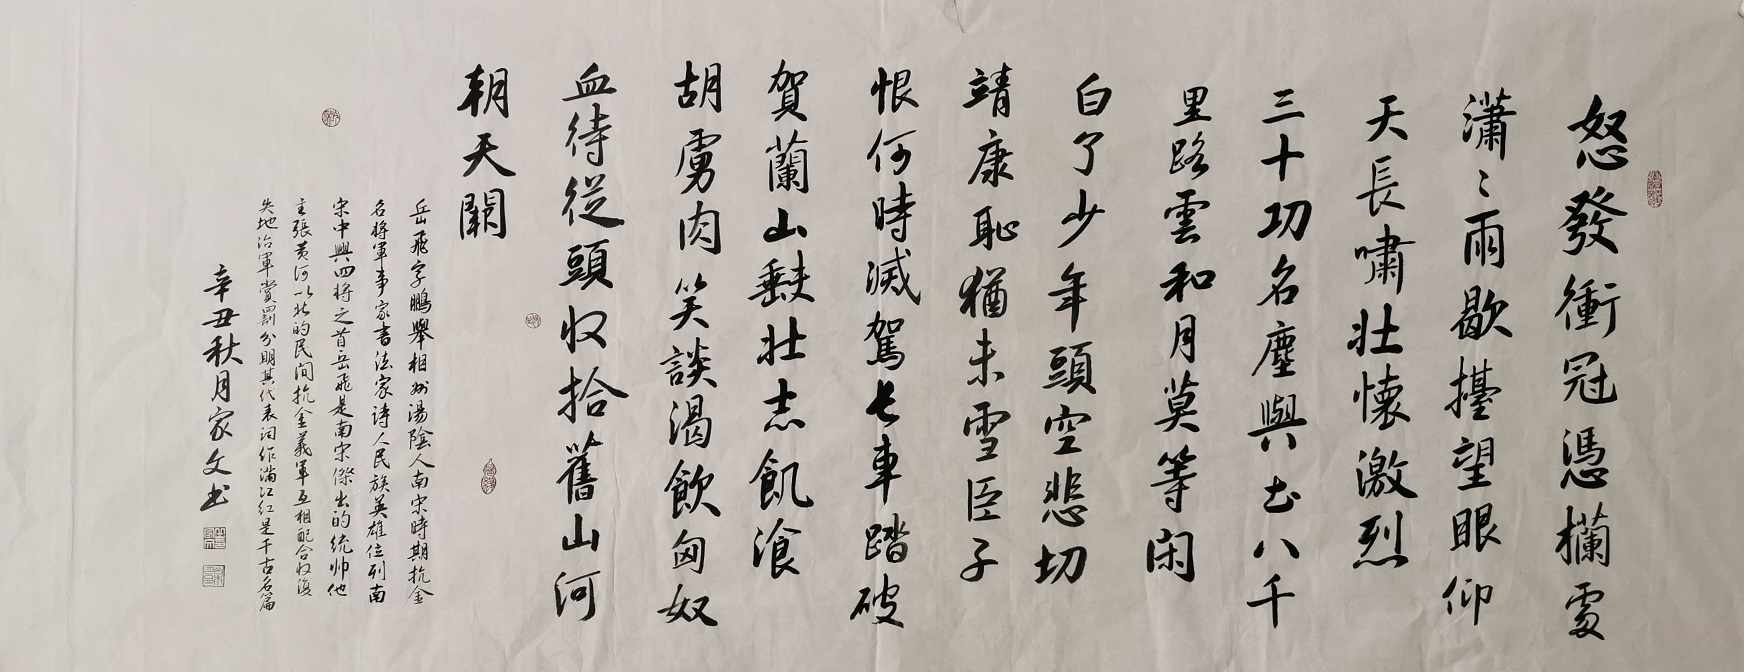 怒發衝冠憑欄處
瀟〻雨歇擡望眼仰
天長嘯壯懷激烈
三十功名塵與土八千
里路雲和月莫等閑
白了少年頭空悲切
靖康恥猶未雪臣子
恨何時滅駕長車踏破
賀蘭山缺壯志飢飡
胡虜肉笑談渴飲匈奴
血待從頭收拾舊山河
朝天闕
岳飛字鵬舉相州湯陰人南宋時期抗金
名將軍事家書法家诗人民族英雄位列南
宋中興四將之首岳飛是南宋傑出的統帅他
主張黃河以北的民间抗金義軍互相配合收復
失地治軍賞罰分明其代表詞作滿江红是千古名篇
辛丑秋月家文书